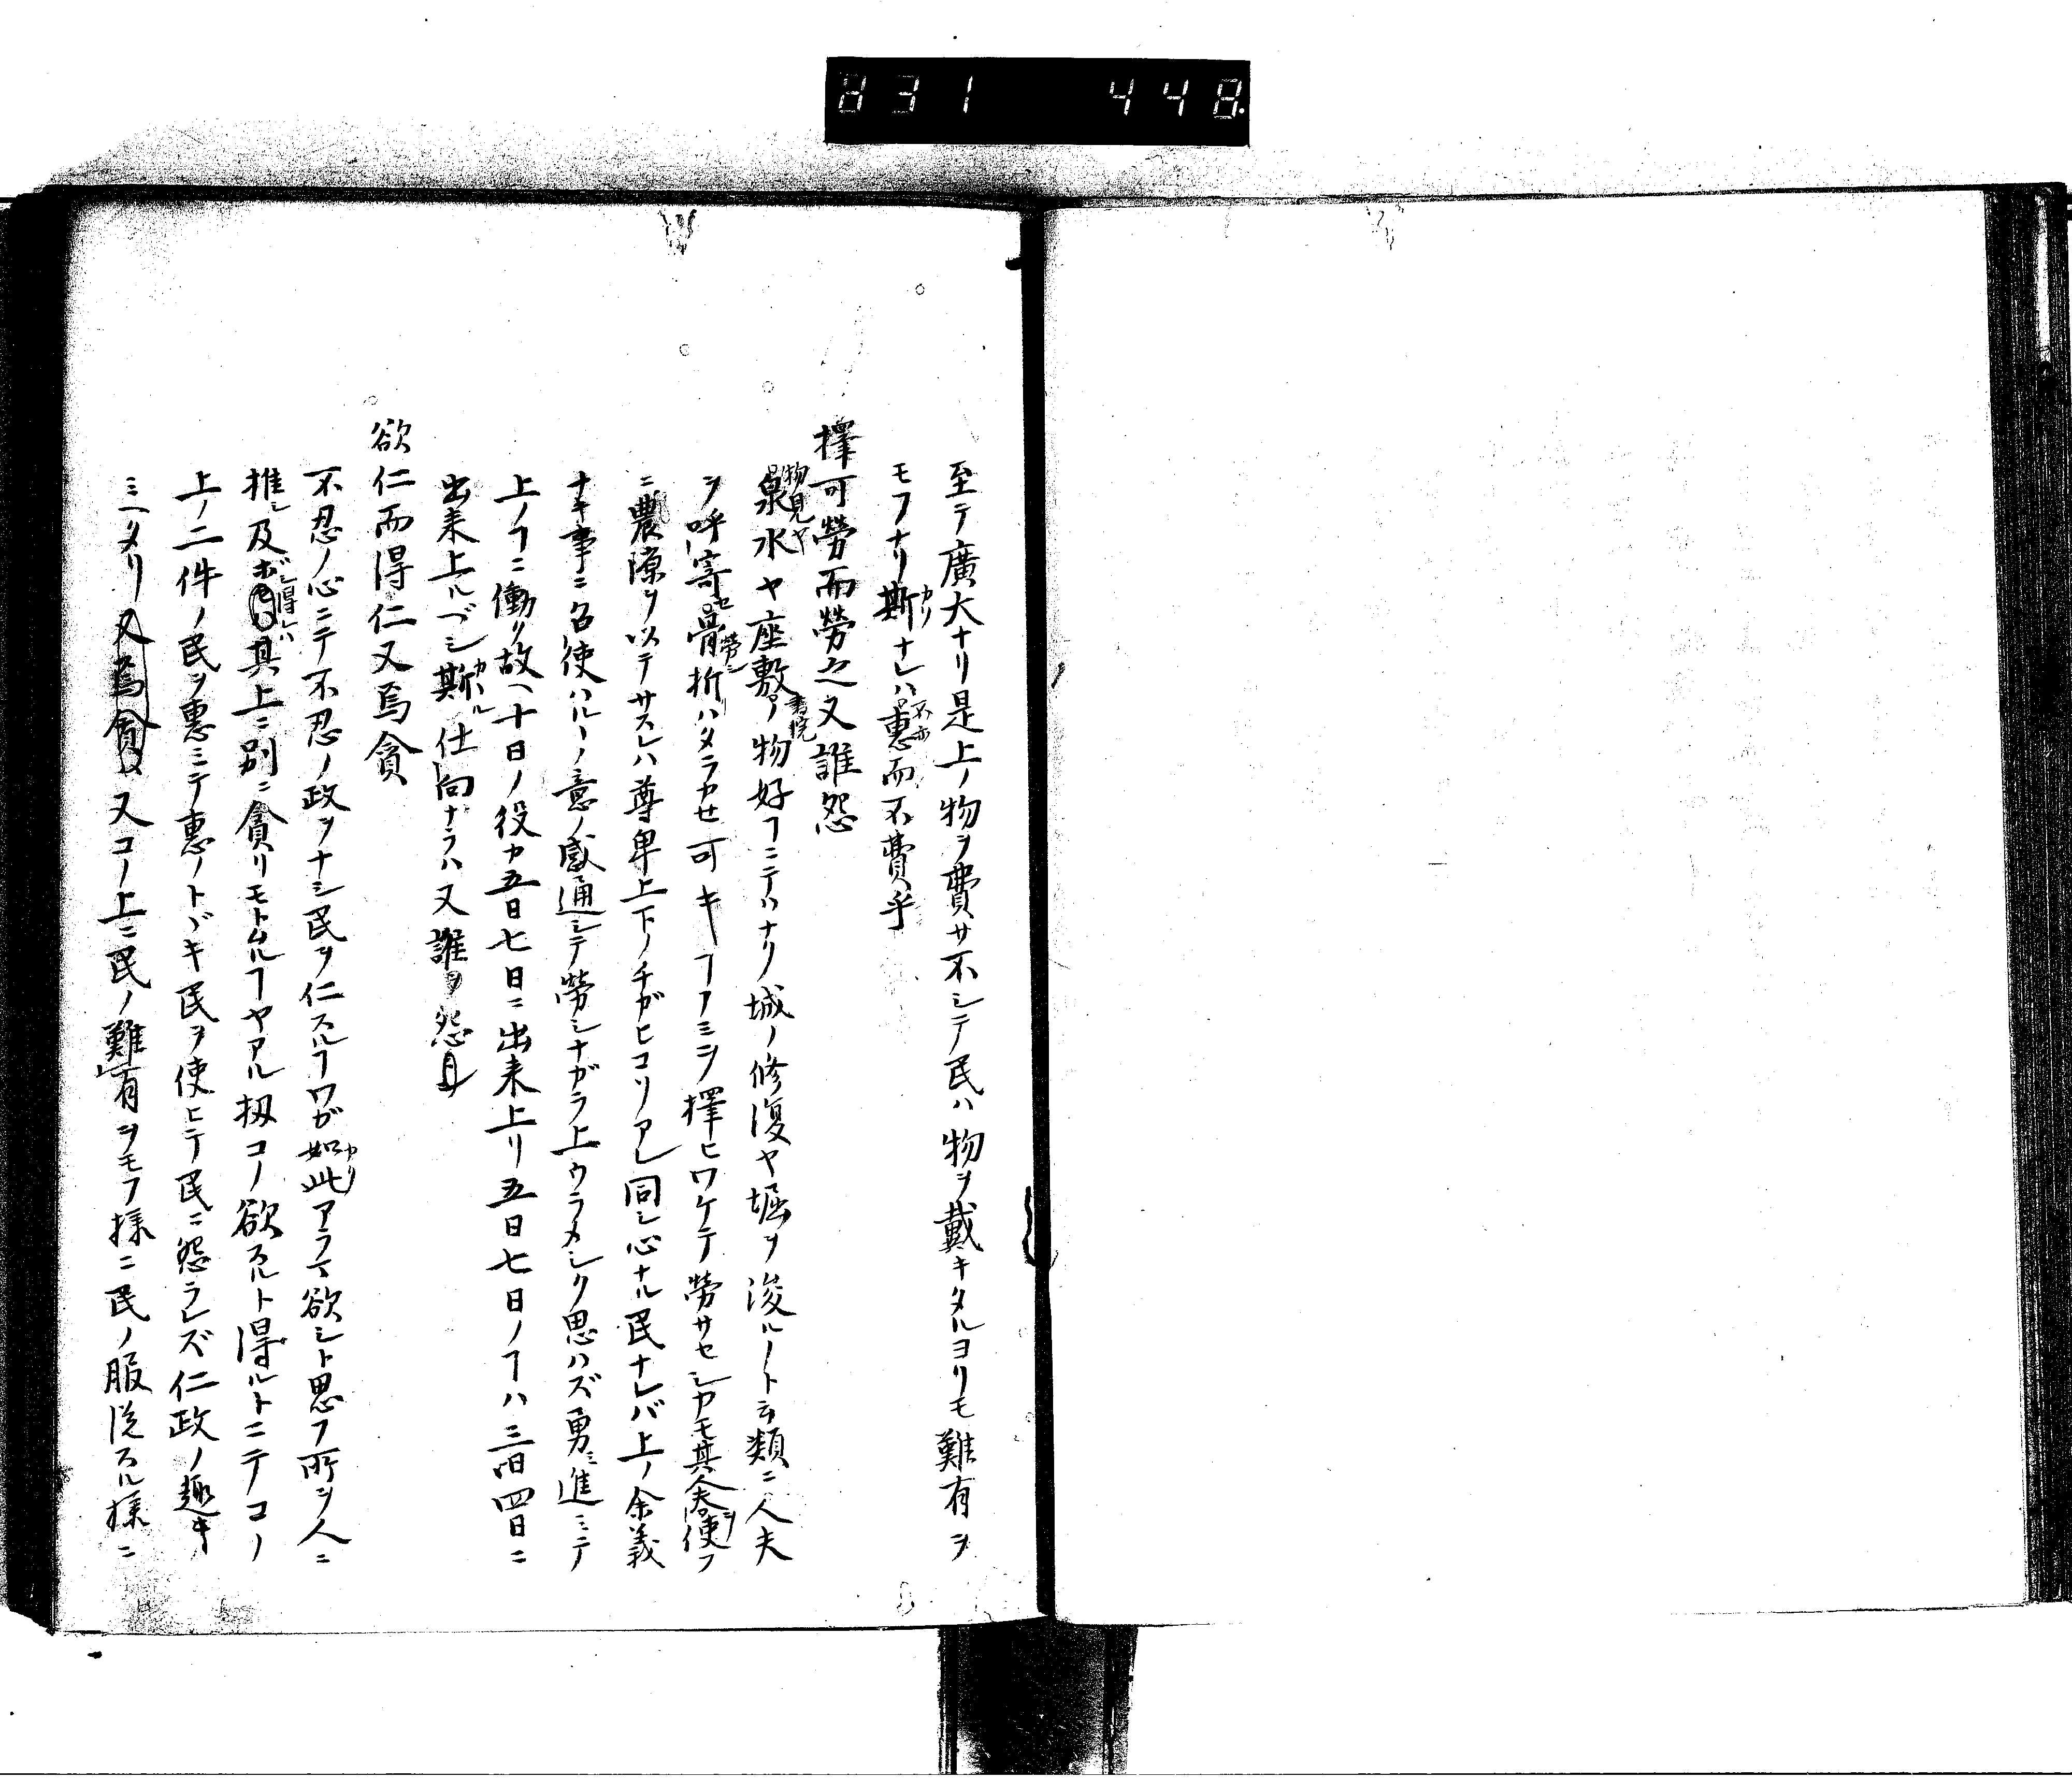 831 448
至テ廣大ナリ是上ノ物ヲ費サ不シテ民ハ物ヲ戴キタルヨリモ難有ヲ
モフナリ斯ナレハ惠而不費乎
カク
不亦
擇可勞而勞之又誰怨
物見ヤ
泉水ヤ座敷ノ物好ヿニテハナリ城ノ修復ヤ堀ヲ浚ルノト云類ニ人夫
書院
ヲ呼寄セ骨折ハタラカせ可キヿノミヲ擇ヒワケテ勞サセシカモ其人夫ヲ使フ
勞シ
ニ農隙ヲ以テサスレハ尊卑上下ノチガヒコソアレ同シ心ナル民ナレバ上ノ余義
ナキ事ニ召使ハルヽノ意ノ感通シテ勞シナガラ上ウラメシク思ハズ勇ミ進ミテ
上ノヿニ働ク故ヘ十日ノ役カ五日七日ニ出来上リ五日七日ノヿハ三日四日ニ
出来上ルベシ斯仕向ナラハ又誰ヲ怨
カヽル
欲仁而得仁又焉貪
不忍ノ心ニテ不忍ノ政ヲナシ民ヲ仁スルヿワが如此アラマ欲シト思フ所ヲ人ニ
推シ及ボシ得レハ其上ニ別ニ貪リモトムルヿヤアル扨コノ欲スルト得ルトニテコノ
上ノ二件ノ民ヲ惠ミテ惠ノトヾキ民ヲ使ヒテ民ニ怨ラレズ仁政ノ趣キ
ミヘタリ又焉貪又コノ上ニ民ノ難有ヲモフ様ニ民ノ服従スル様ニ